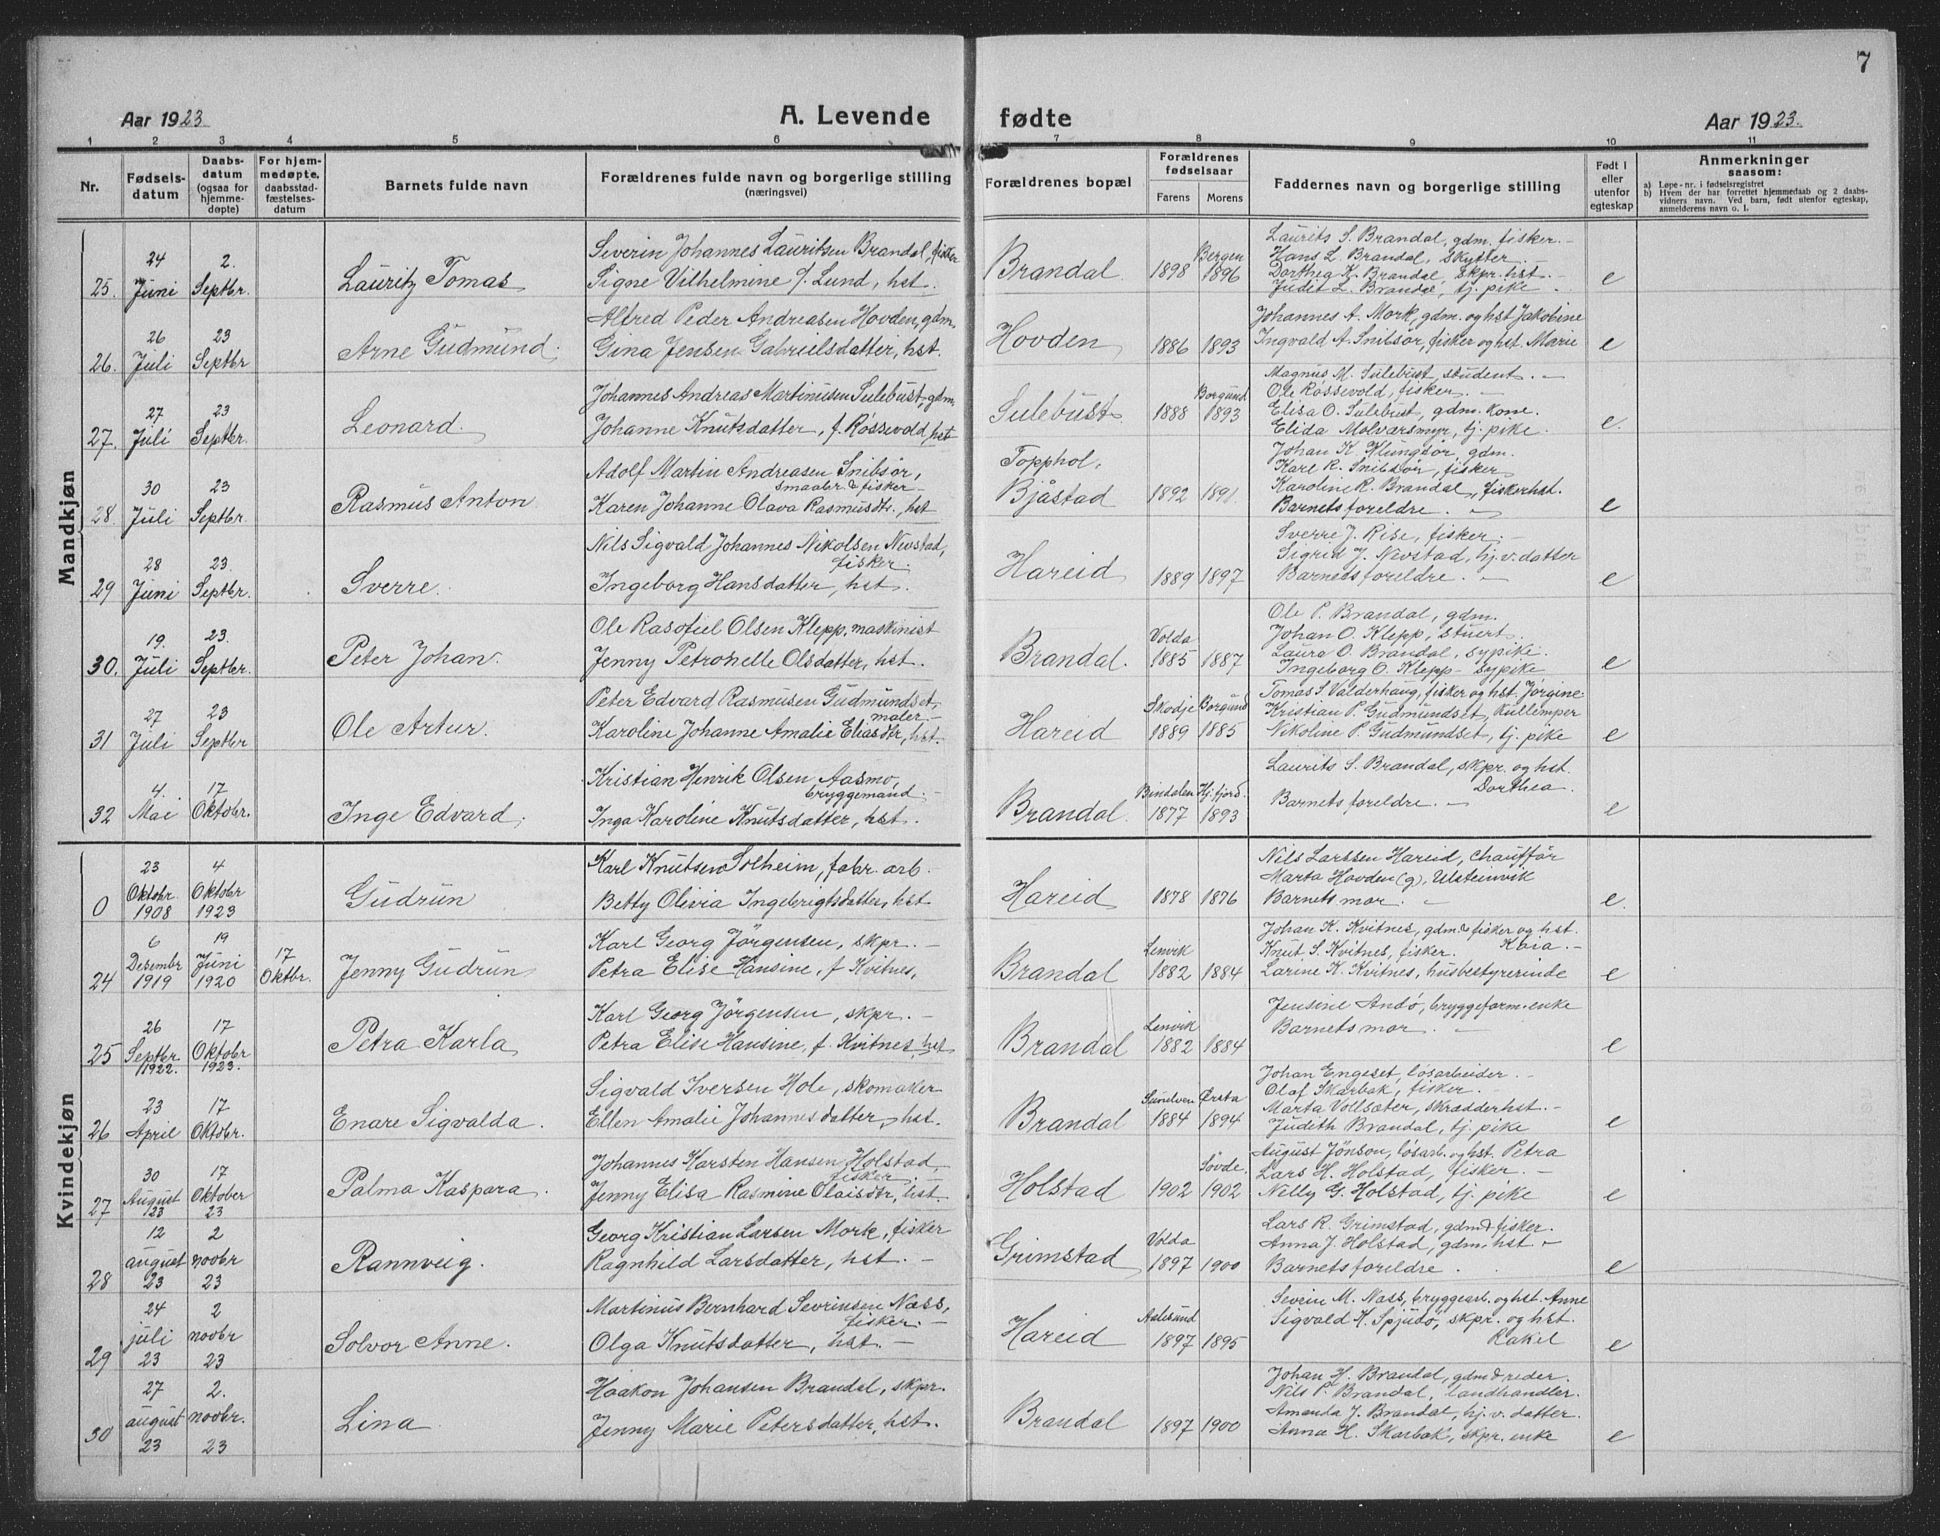 7
Aar 1923
A. Levende
fødte
Aar 1923.
1 2 3 4 5 6 7 8 9 10 11
Nr.
Fødsels-
datum
Daabs-
datum
(ogsaa for
hjemme-
døpte)
For hjem-
medøpte,
daabsstad-
fæstelses-
datum
Barnets fulde navn
Forældrenes fulde navn og borgerlige stilling
(næringsvei)
Forældrenes bopæl
Forældrenes
fødselsaar
Farens Morens
Faddernes navn og borgerlige stilling
Født i
eller
utenfor
egteskap
Anmerkninger
saasom:
a) Løpe-nr. i fødselsregistret
b) Hvem der har forrettet hjemmedaab og 2 daabs-
vidners navn. Ved barn, født utenfor egteskap,
anmelderens navn o. l.
Mandkjøn
25. 24 Juni 2. Septbr.
Lauritz Tomas
Severin Johannes Lauritsen Brandal, fisker
Signe Vilhelmine f. Lund, hst.
Brandal
1898 Bergen 1896
Laurits S. Brandal, gdm. fisker. -
Hans L. Brandal, skytter -
Dorthea K. Brandal, skpr. hst. -
Judit L. Brandal, tj. pike -
e
26. 26 Juli 23 Septbr
Arne Gudmund.
Alfred Peder Andreasen Hovden, gdm.
Gina Jensen Gabrielsdatter, hst.
Hovden
1886 1893
Johannes A. Mork, gdm. og hst Jakobine
Ingvald A. Snibsør, fisker og hst. Marie
e
27. 27 Juli 23 Septbr
Leonard.
Johannes Andreas Martinusen Sulebust, gdm.
Johanne Knutsdatter, f. Røssevold, hst
Sulebust
1888 Borgund 1893
Magnus M. Sulebust, student. -
Ole Røssevold, fisker. -
Elisa O. Sulebust, gdm. kone.
Elida Molværsmyr, tj. pike.
e.
28. 30 Juli 23 Septbr.
Rasmus Anton
Adolf Martin Andreasen Snibsør,
smaabr. & fisker -
Karen Johanne Olava Rasmusdtr., hst
Topphol,
Bjåstad
1892 1891.
Johan K. Klungsør, gdm.
Karl R. Snibsør, fisker
Karoline R. Brandal, fiskerhst.
Barnets foreldre. -
e
29 28 Juni 23. Septbr.
Sverre.
Nils Sigvald Johannes Nikolsen Nevstad,
fisker.
Ingeborg Hansdatter, hst.
Hareid
1889 1897
Sverre J. Rise, fisker. -
Sigrid J. Nevstad, hj. v. datter
Barnets foreldre. -
e
30. 19. Juli 23. Septbr.
Peter Johan.
Ole Rasofiel Olsen Klepp, maskinist
Jenny Petronelle Olsdatter, hst.
Brandal.
Volda 1885 1887
Ole P. Brandal, gdm.
Johan O. Klepp, stuert.
Laura O. Brandal, sypike.
Ingeborg O. Klepp - sypike
e
31 27 Juli 23 Septbr
Ole Artur.
Peter Edvard Rasmusen Gudmundset,
maler. -
Karoline Johanne Amalie Eliasdtr, hst.
Hareid
Skodje 1889 Borgund 1885
Tomas S. Valderhaug, fisker og hst. Jørgine
Kristian P. Gudmundset, kullemper
Nikoline P. Gudmundset, tj. pike
e
32 4. Mai 17 Oktobr.
Inge Edvard.
Kristian Henrik Olsen Aasmo,
bryggemand. -
Inga Karoline Knutsdatter, hst.
Brandal.
Bindalen 1877 Hj. fjord. 1893
Laurits S. Brandal, skpr. og hst.
Dorthea.
Barnets foreldre. -
e
Kvindekjøn
0 23 Oktobr. 1908 4 Oktobr 1923
Gudrun
Karl Knutsen Solheim, fabr. arb. -
Betty Olivia Ingebrigtsdatter, hst
Hareid
1878 1876
Nils Larssen Hareid, chaufför
Marta Hovden (g), Ulstenvik
Barnets mor. -
e.
24 6 Desembr 1919 19 Juni 1920 17 Oktbr.
Jenny Gudrun
Karl Georg Jørgensen, skpr. -
Petra Elise Hansine, f Kvitnes,
Brandal
Lenvik 1882 1884
Johan K. Kvitnes, gdm. & fisker og hst.
Knut S. Kvitnes, fisker. Kaia. -
Larine K. Kvitnes, husbestyrerinde
e
25 26 Septbr. 1922. 17 Oktobr 1923.
Petra Karla
Karl Georg Jørgensen, skpr. -
Petra Elise Hansine, f. Kvitnes hst
Brandal
Lenvik 1882 1884
Jensine Andø, bryggeform. enke
Barnets mor. -
e
26 23 April 17 Oktobr.
Enare Sigvalda.
Sigvald Iversen Hole, skomaker
Ellen Amalie Johannesdatter, hst.
Brandal
Sunelven 1884 Ørsta 1894
Johan Engeset, løsarbeider. -
Olaf Skarbak, fisker. -
Marta Vollsæter, skrædderhst. -
Judith Brandal, tj. pike
e
27 30 August 23 17 Oktober 23
Palma Kaspara.
Johannes Karsten Hansen Holstad,
fisker. -
Jenny Elisa Rasmine Olaisdtr, hst.
Holstad
1902 Søvde. 1902
August Jönson, løsarb. og hst. Petra
Lars H. Holstad, fisker. -
Nelly G. Holstad, tj. pike
e
28 12 august 23 2 novbr 23
Rannveig.
Georg Kristian Larsen Mork, fisker
Ragnhild Larsdatter, hst. -
Grimstad
Volda 1897 1900
Lars R. Grimstad, gdm & fisker.
Anna J. Holstad, gdm. hst -
Barnets foreldre.
e
29 24 juli 23 2 novbr 23
Solvor Anne.
Martinus Bernhard Sevrinsen Næss,
fisker. -
Olga Knutsdatter, hst. -
Hareid
Aalesund 1897 1895
Severin M. Næss, bryggearb. og hst. Anne
Sigvald K. Spjudø, skpr. og hst.
Rakel
e
30 27 august 23 2. novbr. 23
Lina
Haakon Johansen Brandal, skpr.
Jenny Marie Petersdatter, hst.
Brandal
1897 1900
Johan H. Brandal, gdm & reder.
Nils P. Brandal, landhandler.
Amanda J. Brandal, hj. v. datter.
Anna H. Skarbak, skpr. enke
e